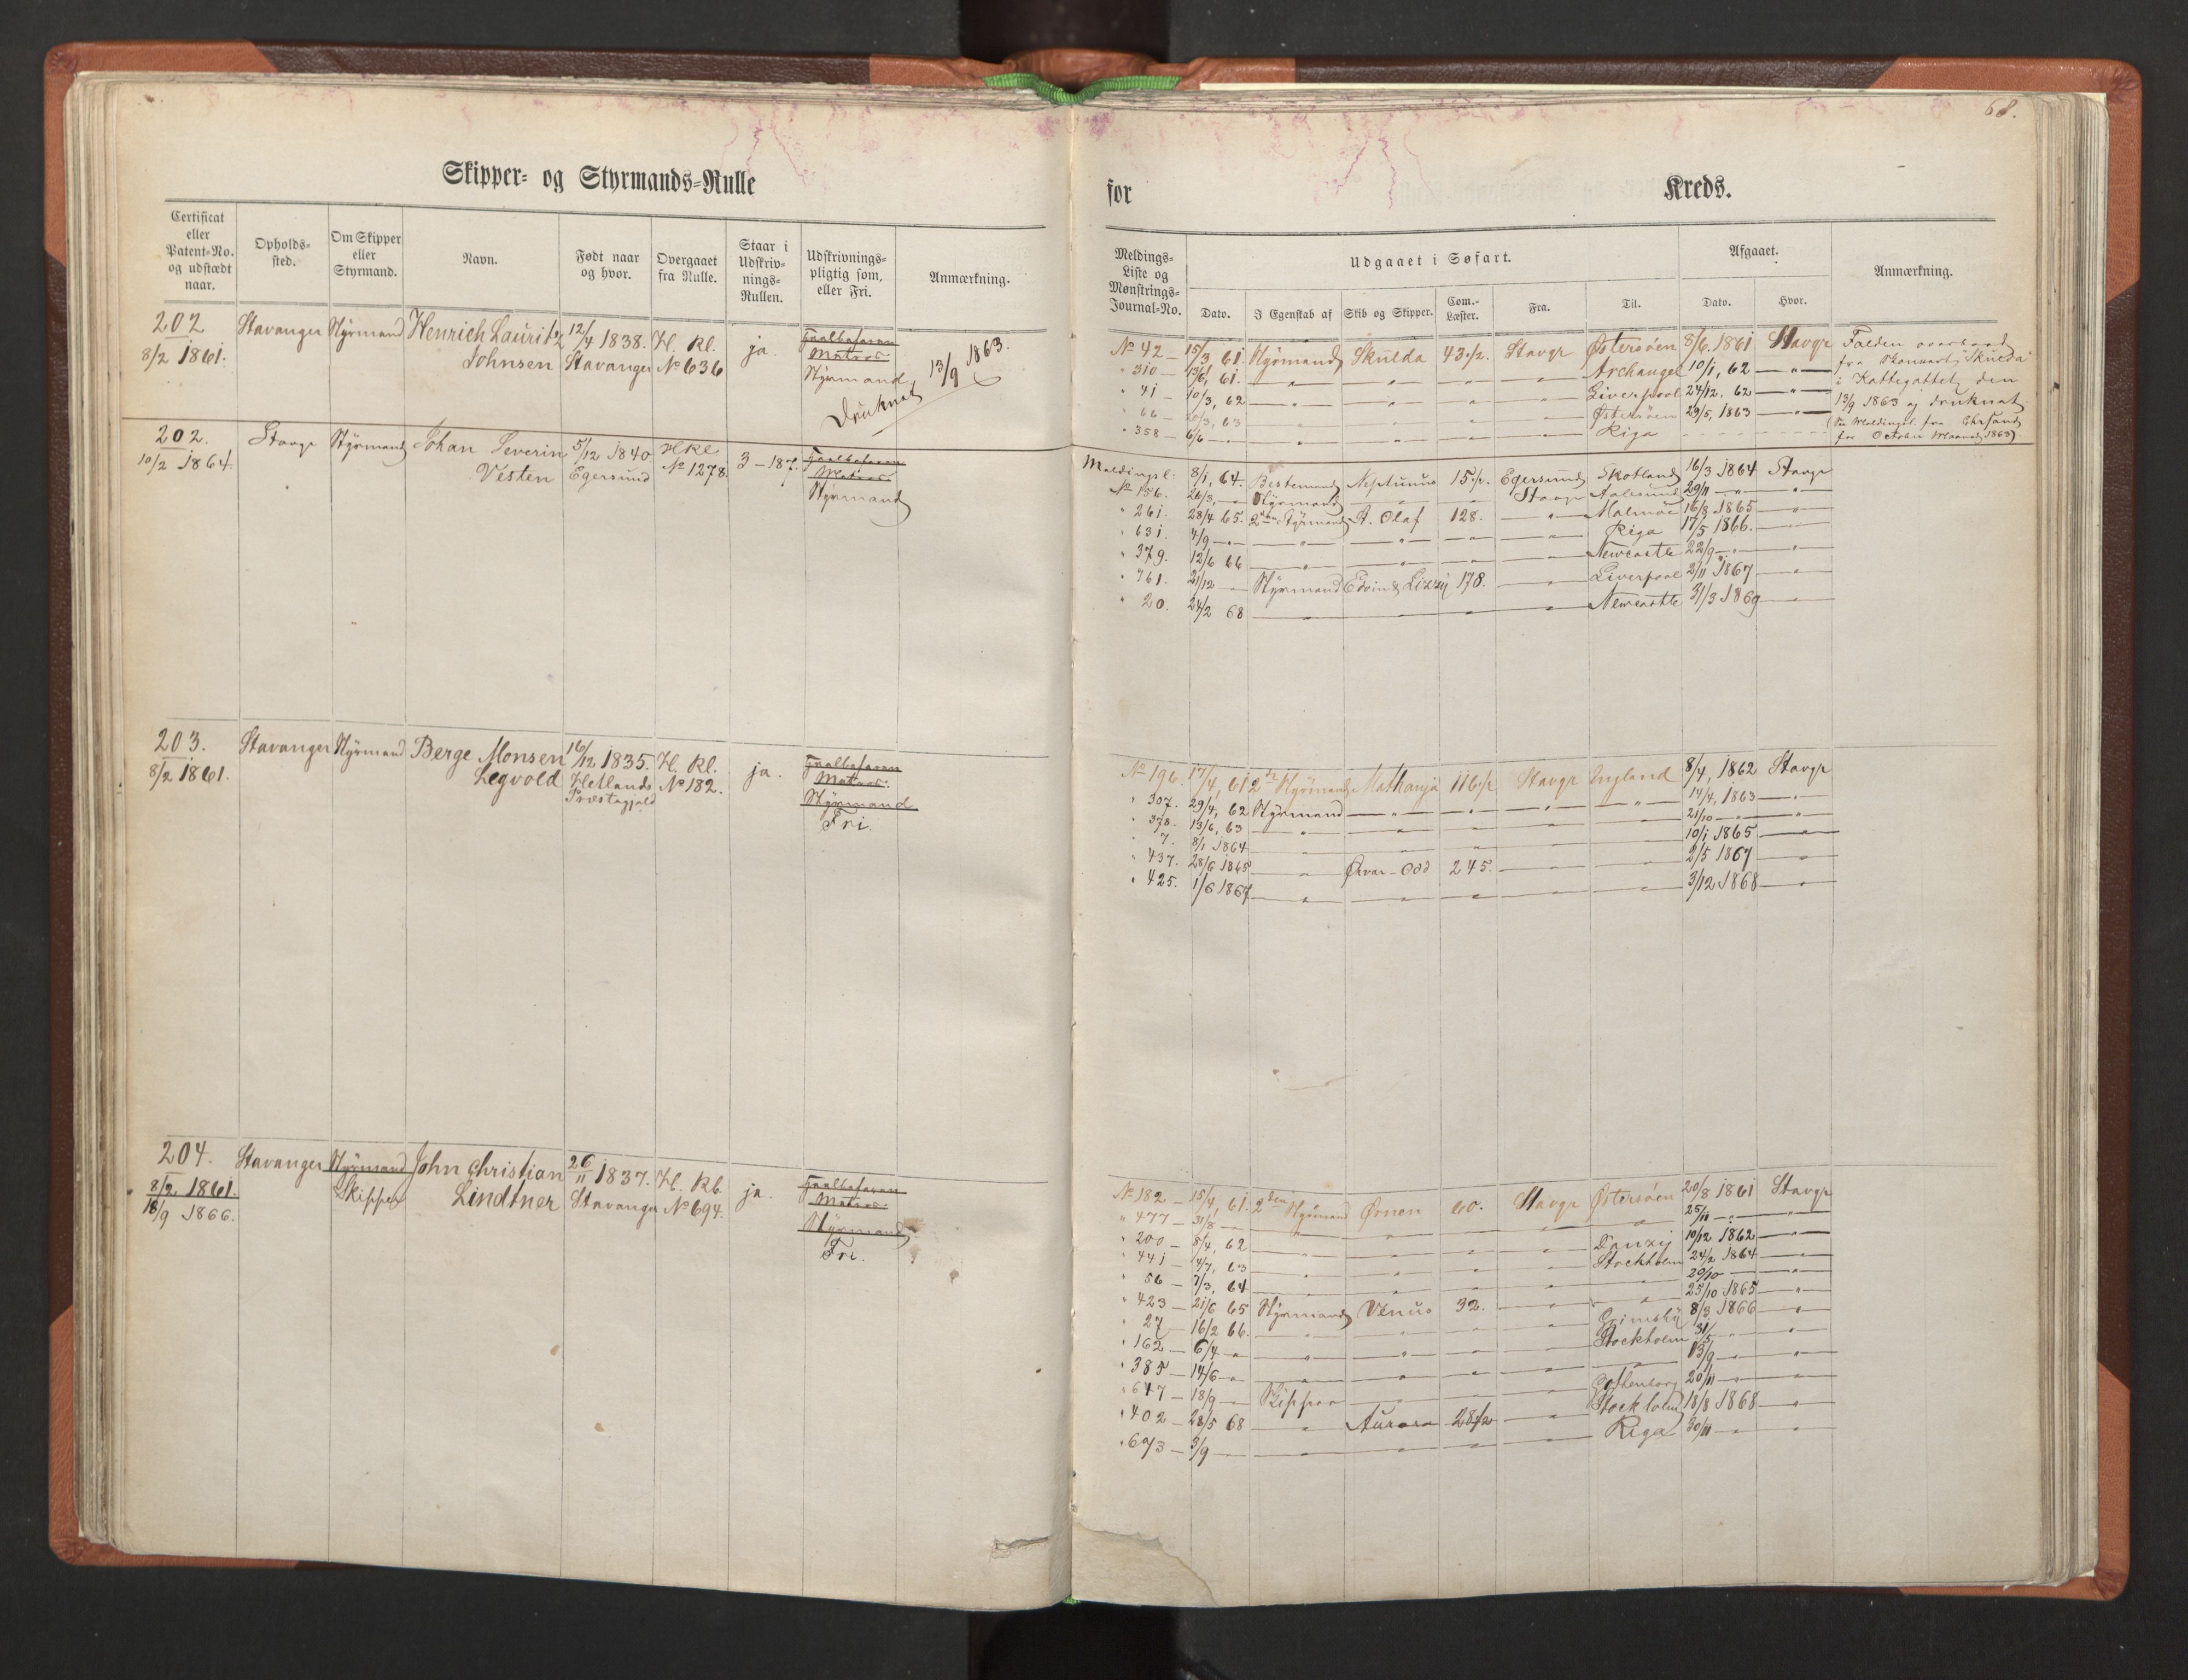 68.
Skipper- og Styrmands-Rulle
for Kreds.
Certificat eller Patent-No. og udstædt naar.
Opholds-sted.
Om Skipper eller Styrmand.
Navn.
Født naar og hvor.
Overgaaet fra Rulle.
Staar i Udskriv-nings-Rullen.
Udskrivnings-pligtig som, eller Fri.
Anmærkning.
Meldings-Liste og Mønstrings-Journal-No.
Udgaaet i Søfart.
Dato. I Egenskab af Skib og Skipper. Com.-Læster. Fra. Til.
Afgaaet.
Dato. Hvor.
Anmærkning.
202 Stavanger Styrmand Henrich Lauritz 12/4 1838. H. Kl. ja. Fuldbefaren
8/2 1861. Johnsen Stavanger No 636 Matros
Styrmand
Druknet 13/9 1863.
No 42 — 15/3 61 Styrmand Skulda 43 1/2. Stavgr Østersøen 8/6 1861 Stavgr
" 310 — 13/6, 61. — " — Archangel 10/1, 62 — " —
" 41 — 10/3, 62 — " — Liverpool 24/12. 62 — " —
" 66 — 20/3, 63 — " — Østersøen 29/5, 1863 — " —
" 358 — 6/6 — " — Riga
Falden overbord
fra Skonnert "Skulda"
i Kattegattet den
13/9 1863 og druknet
(Se Meldingsl. fra Chrsand
for October Maaned 1863)
202. Stavgr Styrmand Johan Severin 5/12 1840 H Kl. 3 — 187. Fuldbefaren
10/2 1864. Vesten Egersund No 1278. Matros
Styrmand
Meldingsl: 8/1, 64. Bestemand Neptunus 15 1/2. Egersund Skotland 16/3 1864 Stavgr
No 156. 26/3, — " Styrmand — " — Stavgr Aalesund 29/11 — " — "
" 261. 28/4 65. 2den Styrmand St. Olaf 128. — " — Malmöe 16/8 1865 — "
" 631. 4/9 — " — Riga 17/5 1866. —
" 379. 12/6 66 — " — Newcastle 22/9 — " — "
" 761. 21/12 — Styrmand Edvin & Lizzy 178. — Liverpool 2/11 1867 — "
" 20. 24/2 68 — " — Newcastle 31/3 1869 — "
203. Stavanger Styrmand Berge Monsen 16/12 1835. H. Kl. ja. Fuldbefaren
8/2 1861. Legvold Hetlands No 182. Matros.
Præstegjeld Styrmand
Fri.
No 196. 17/4, 61 2n Styrmand Nathanja 116 1/2 Stavgr England 8/4, 1862 Stavgr
" 307. 29/4, 62 Styrmand — " — 14/4, 1863 — "
" 378. 13/6, 63 — " — 21/10 — " — "
" 7. 8/1 1864 — " — 10/1 1865 — "
" 437. 28/6 1865 — " — Ørvar-Odd 245. — " — 2/5 1867 — "
" 425. 1/6 1867 — " — 3/12 1868 — "
204. Stavanger Styrmand John Christian 26/11 1837. H. Kl. ja. Fuldbefaren
8/2 1861. Skipper Lindtner Stavanger No 694. Matros.
18/9 1866. Styrmand
Fri.
No 182 — 15/4, 61. 2den Styrmand Ørnen 60. Stavgr Østersøen 20/8 1861 Stavgr
" 477 — 31/8 — " — 25/11 — " — "
" 200 — 8/4, 62 — " — Danzig 10/12 1862 — "
" 441 — 4/7, 63 — " — Stockholm 24/2 1864 — "
" 56 — 7/3, 64 — " — 20/10 — "
" 423 — 21/6 65 Styrmand Venus 32. — " — 25/10 1865 — "
" 27 — 16/2 66. — " — Grimsby 8/3 1866 — "
" 162 — 6/4 — " — Stockholm 31/5 — " — "
" 385 — 14/6 — " — 13/9 — " — "
" 647 — 18/9 — Skipper — Gothenborg 20/11 — " — "
" 402 — 28/5 68 — " — Aurora 28 1/2 — Stockholm 18/8 1868 — "
" 673 — 3/9 — " — Riga 30/11 — " — "